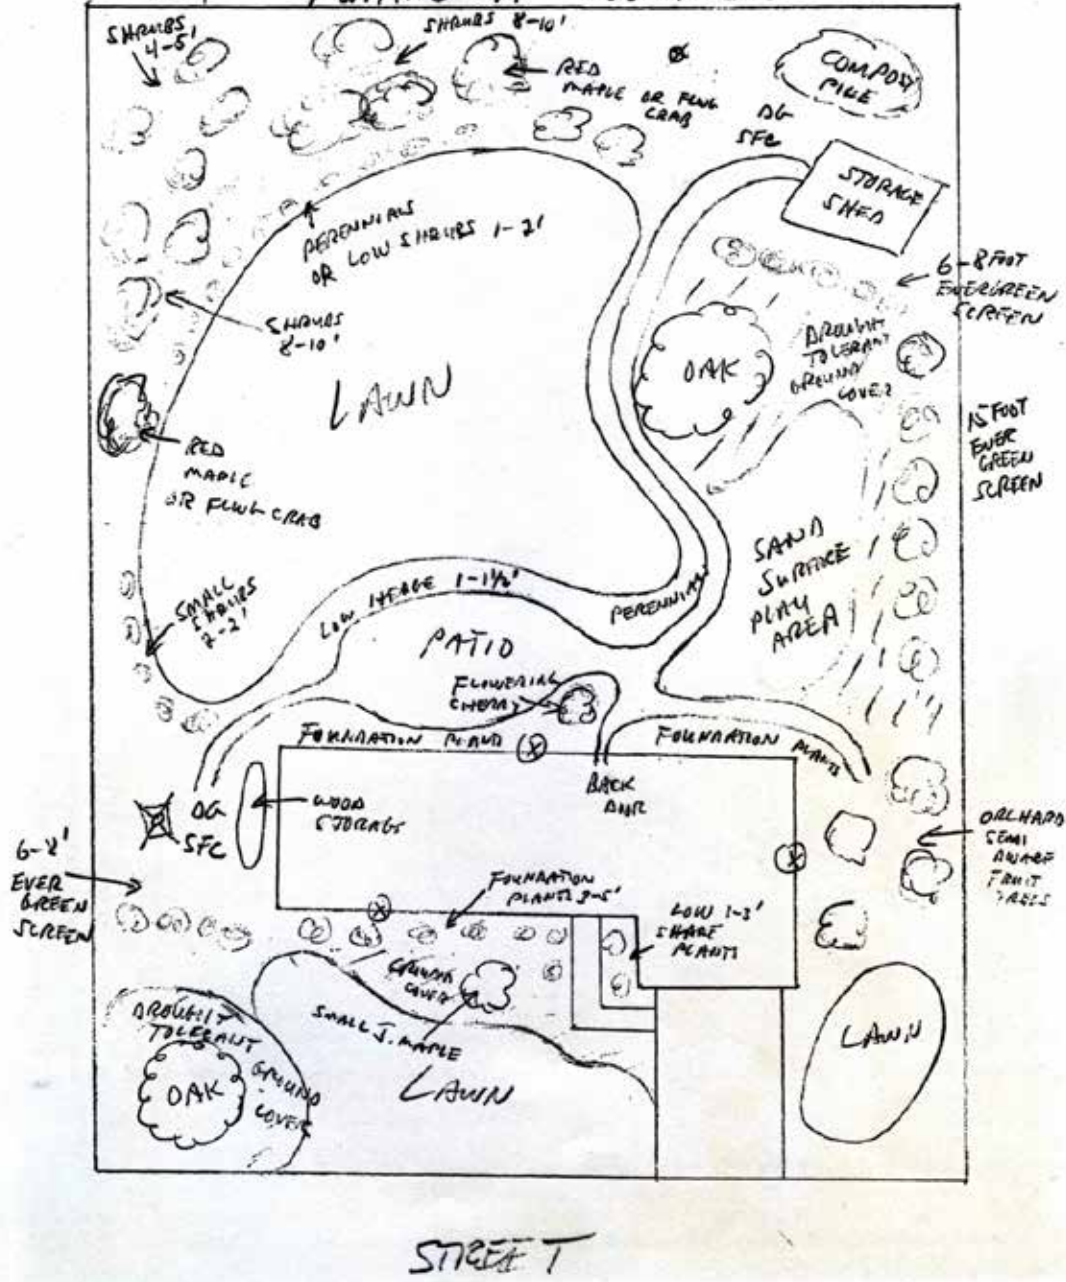 SHRUBS
4-5'
SHRUBS 8-10'
RED
MAPLE OR FLWG
CRAB
COMPOST
PILE
DG
SFC
STORAGE
SHED
PERENNIALS
OR LOW SHRUBS 1-2'
6-8 FOOT
EVERGREEN
SCREEN
SHRUBS
8-10'
OAK
DROUGHT
TOLERANT
GROUND
COVER
LAWN
15 FOOT
EVER
GREEN
SCREEN
RED
MAPLE
OR FLWG CRAB
SAND
SURFACE
PLAY
AREA
SMALL
SHRUBS
2-2'
LOW HEDGE 1-1½'
PERENNIALS
PATIO
FLOWERING
CHERRY
FOUNDATION PLANTS
FOUNDATION PLANTS
BACK
DOOR
WOOD
STORAGE
DG
SFC
6-8'
EVER
GREEN
SCREEN
ORCHARD
SEMI
DWARF
FRUIT
TREES
FOUNDATION
PLANTS 3-5'
LOW 1-3'
SHADE
PLANTS
GROUND
COVER
SMALL J. MAPLE
DROUGHT
TOLERANT
GROUND
COVER
OAK
LAWN
LAWN
STREET